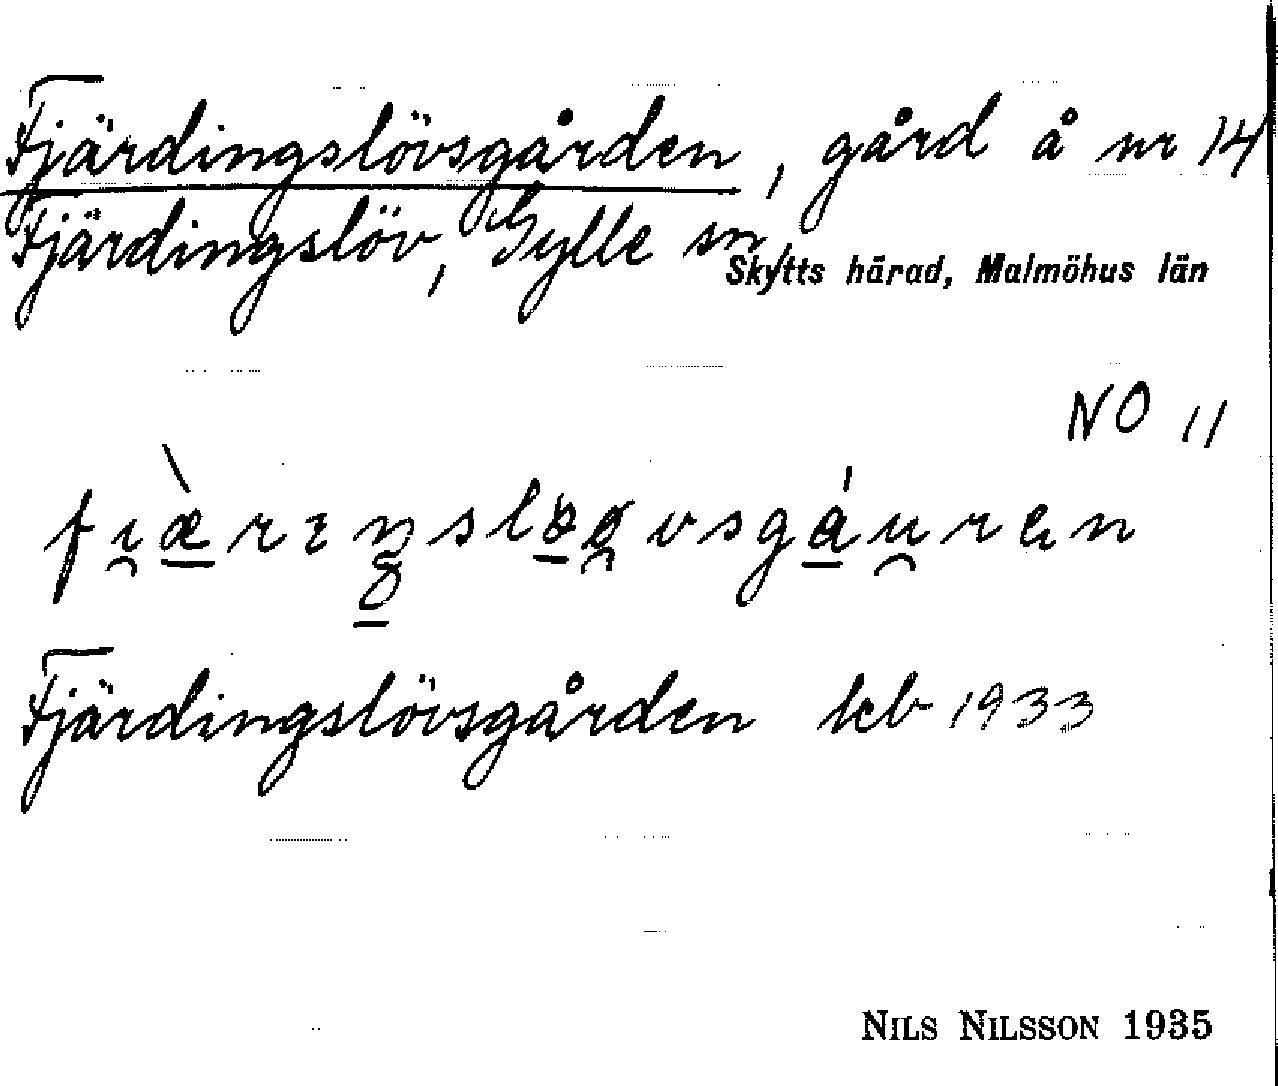 Fjärdingslövsgården, gård å nr 14
Fjärdingslöv, Gylle sn,
Skytts härad, Malmöhus län
NO 11
Fjärdingslövsgården leb 1933
NILS NILSSON 1935